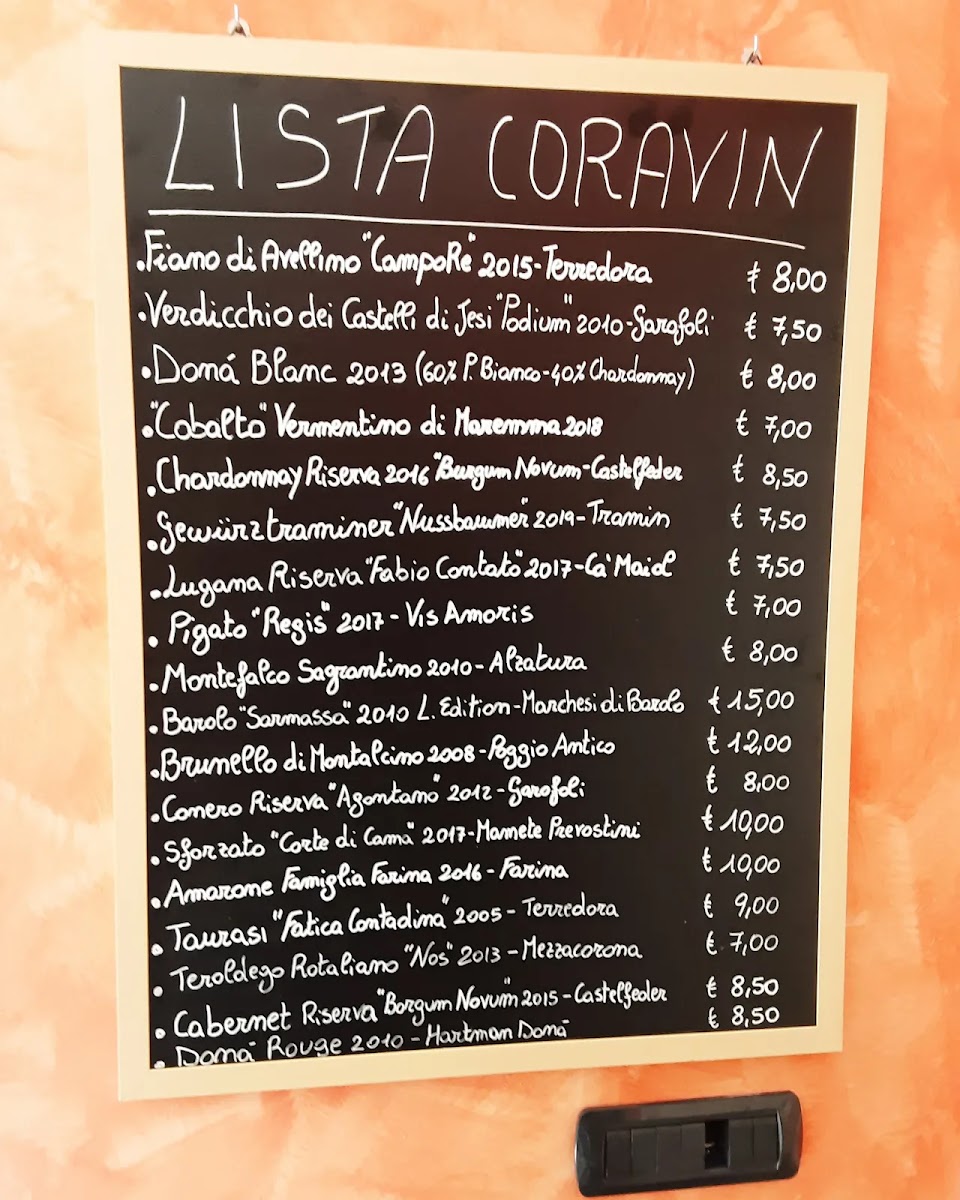 LISTA CORAVIN
.Fiano di Avellino "CampoRe" 2015-Terredora € 8,00
.Verdicchio dei Castelli di Jesi "Podium" 2010-Garofoli € 7,50
.Doná Blanc 2013 (60% P. Bianco-40% Chardonnay) € 8,00
."Cobalto" Vermentino di Maremma 2018 € 7,00
.Chardonnay Riserva 2016 "Burgum Novum-Castelfeder € 8,50
.Gewürztraminer "Nussbaumer" 2019-Tramin € 7,50
.Lugana Riserva "Fabio Contato" 2017-Ca' Maiol € 7,50
. Pigato "Regis" 2017 - Vis Amoris € 7,00
.Montefalco Sagrantino 2010-Alzatura € 8,00
.Barolo "Sarmassa" 2010 L. Edition-Marchesi di Barolo € 15,00
.Brunello di Montalcino 2008-Poggio Antico € 12,00
.Conero Riserva "Agontano" 2012-Garofoli € 8,00
.Sforzato "Corte di Cama" 2017-Mamete Prevostini € 10,00
.Amarone Famiglia Farina 2016-Farina € 10,00
.Taurasi "Fatica Contadina" 2005-Terredora € 9,00
.Teroldego Rotaliano "Nos" 2013-Mezzacorona € 7,00
.Cabernet Riserva "Borgum Novum" 2015-Castelfeder € 8,50
.Doná Rouge 2010-Hartman Doná € 8,50